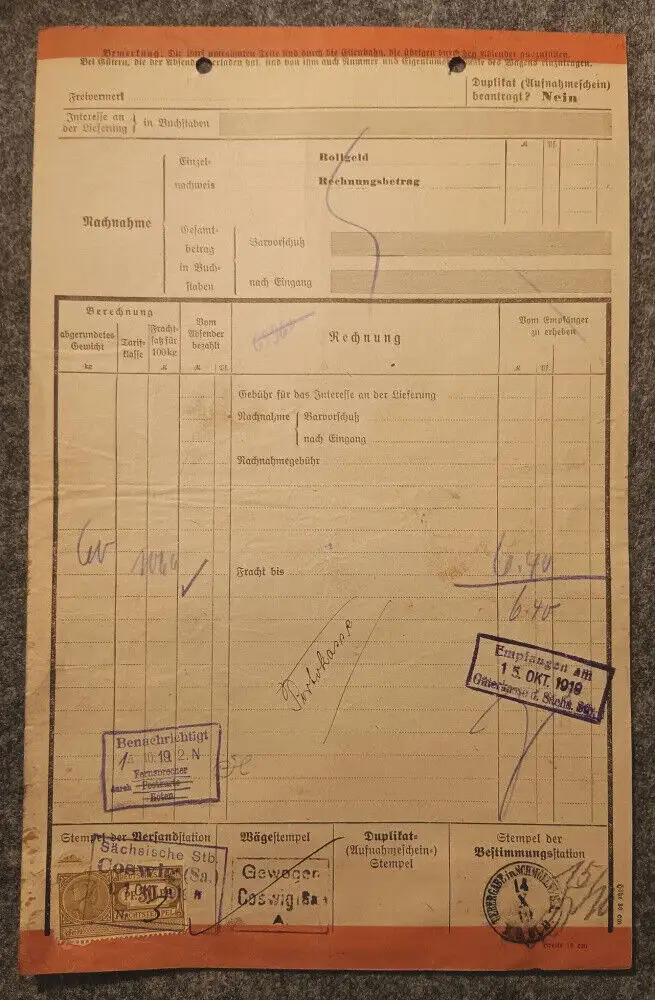 Bemerkung. Die stark umrahmten Teile sind durch die Eisenbahn, die übrigen durch den Absender auszufüllen.
Bei Gütern, die der Absender verladen hat, sind von ihm auch Nummer und Eigentumsmerkmale des Wagens einzutragen.
Freivermerk
Duplikat (Aufnahmeschein)
beantragt? Nein
Interesse an
der Lieferung } in Buchstaben
Nachnahme
Einzel-
nachweis
Rollgeld
Rechnungsbetrag
M Pf.
Gesamt-
betrag
in Buch-
staben
Barvorschuß
nach Eingang
Berechnung
abgerundetes
Gewicht
kg
Tarif-
klasse
Fracht-
satz für
100 kg
M
Vom
Absender
bezahlt
M Pf.
Rechnung
Vom Empfänger
zu erheben
M Pf.
Gebühr für das Interesse an der Lieferung
Nachnahme { Barvorschuß
nach Eingang
Nachnahmegebühr
60
Fracht bis
6.40
6.40
Portokasse
Empfangen am
15. OKT. 1919
Güterkasse d. Sächs. Stb.
Benachrichtigt
10.19 2. N
Fernsprecher
durch Postkarte
Boten
Stempel der Versandstation
Wägestempel
Duplikat-
(Aufnahmeschein-)
Stempel
Stempel der
Bestimmungsstation
Sächsische Stb.
Coswig (Sa.)
Gewogen
Coswig (Sa.)
A
14
X
19
15/10
Breite 19 cm